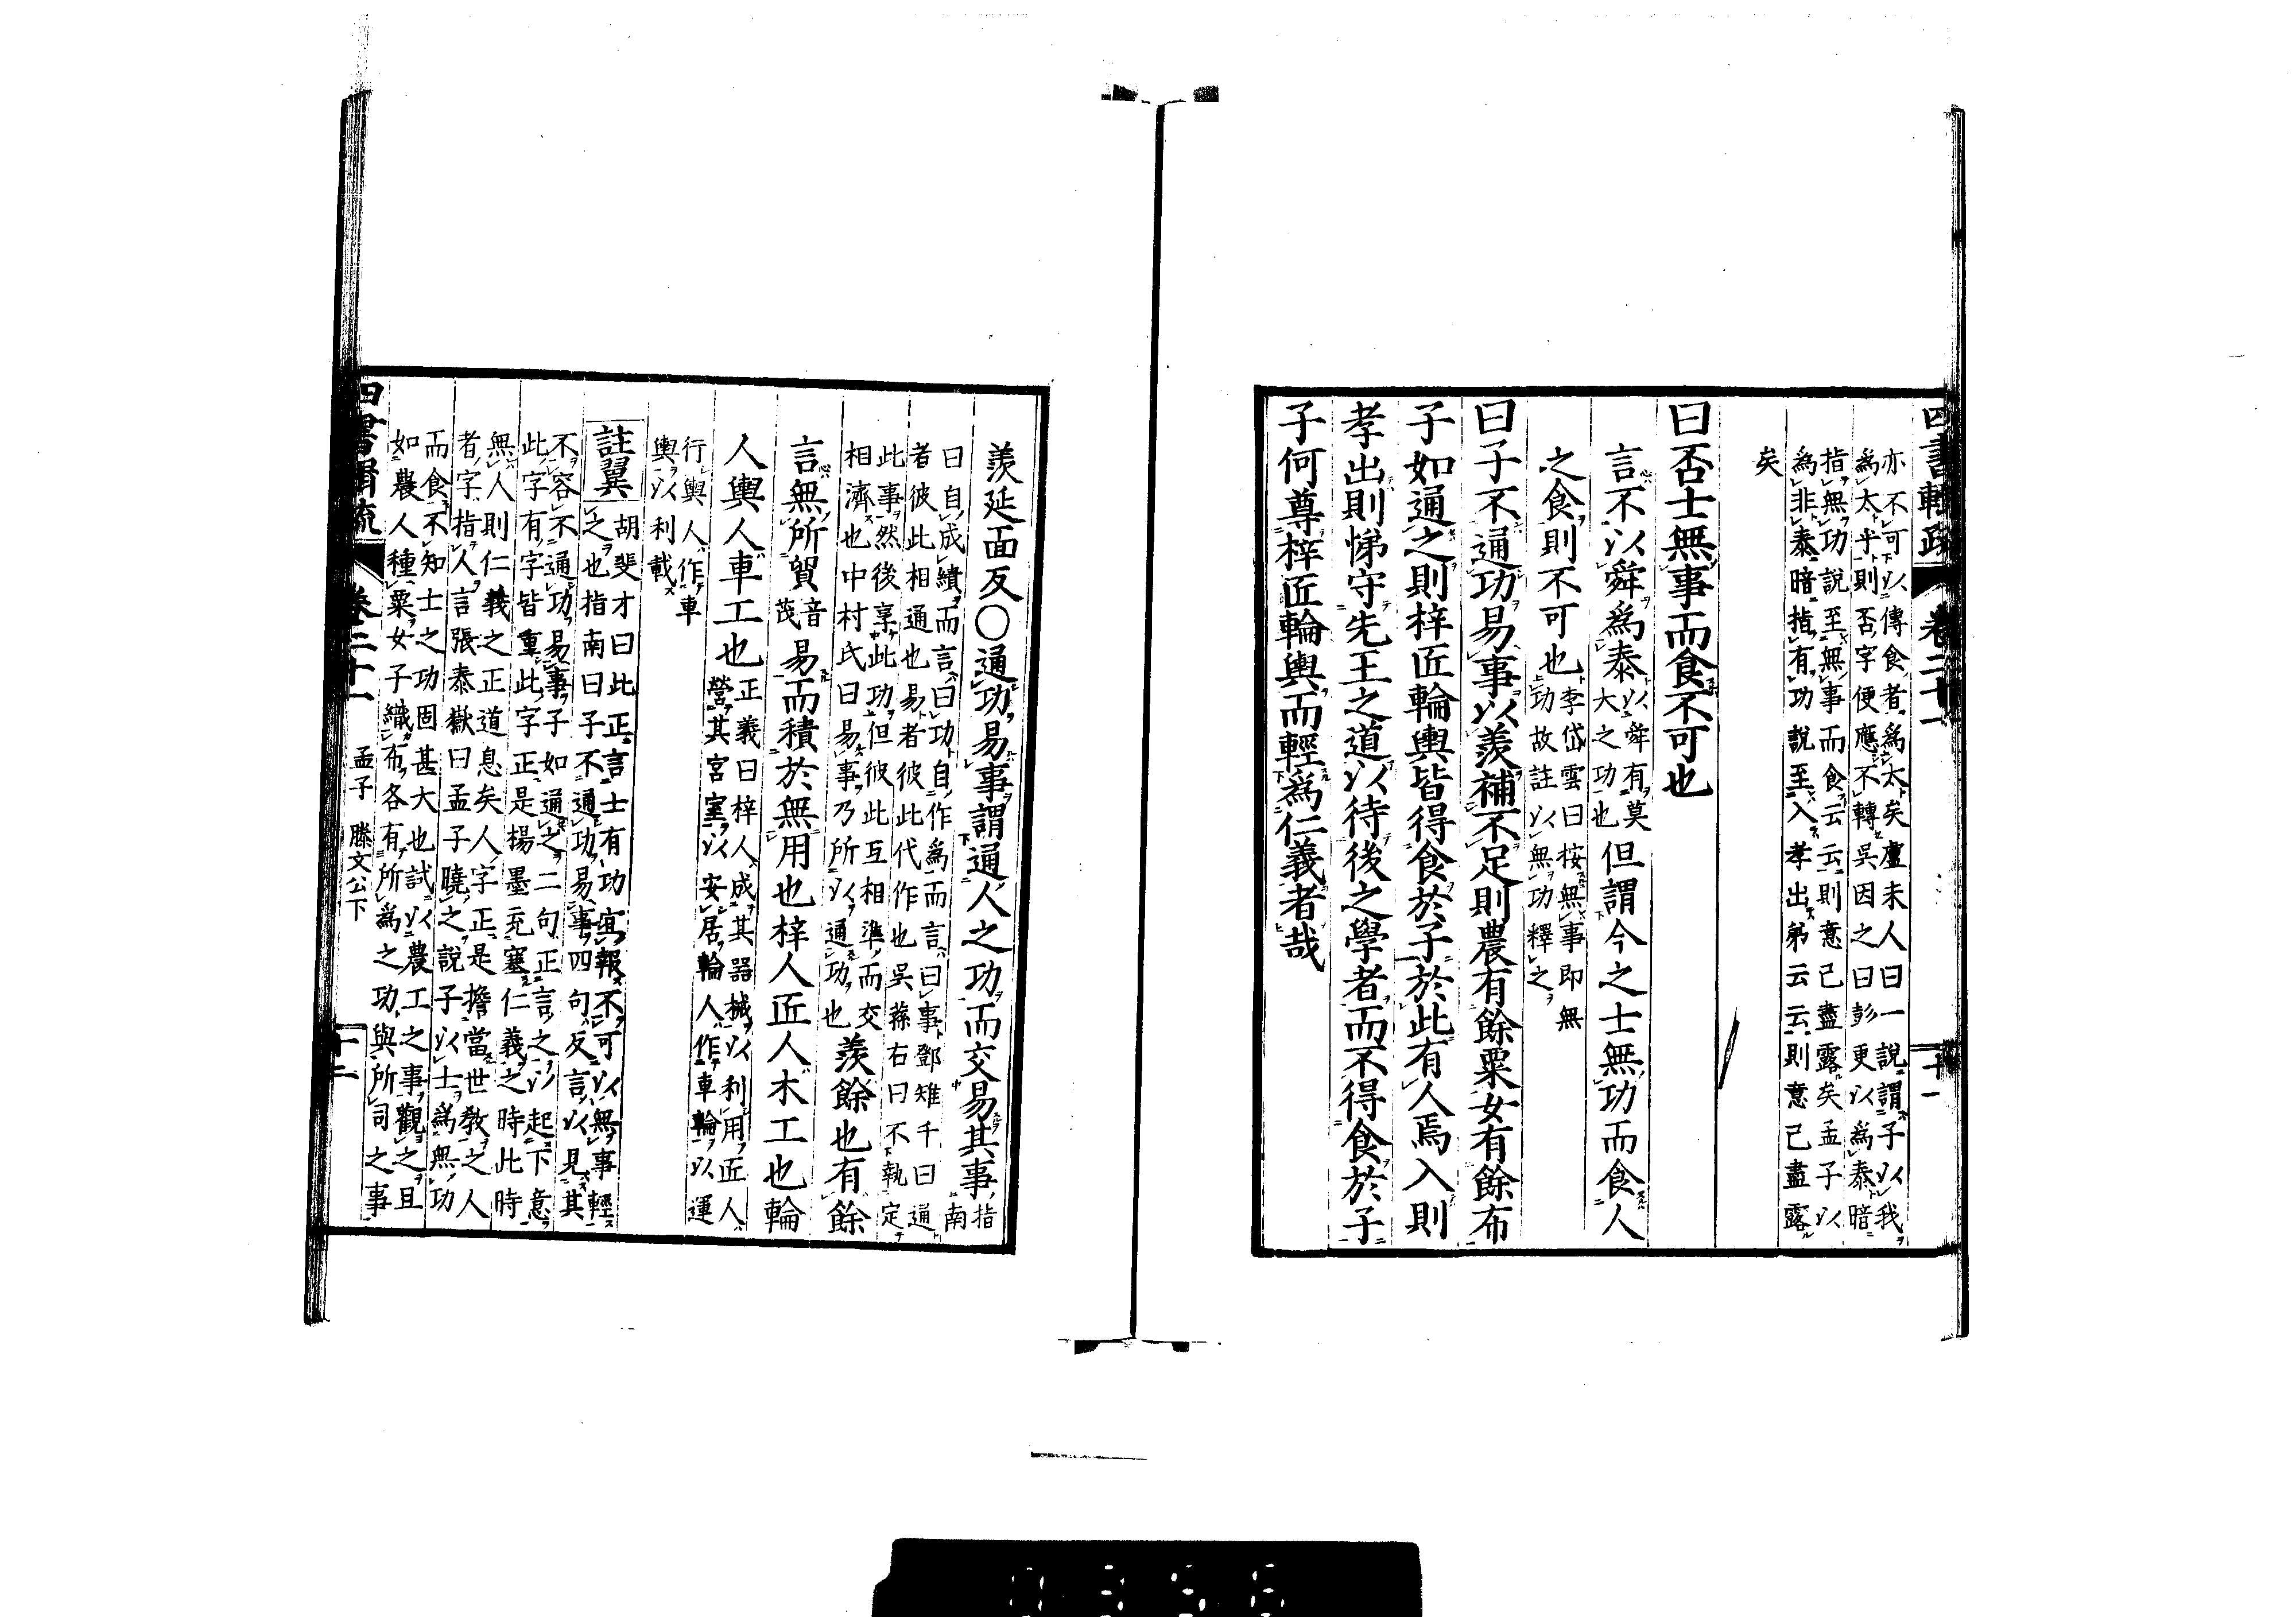 四書輯疏 卷二十一 十一
亦不可以傳食者爲太矣盧未人曰一說謂子以我
爲太乎則否字便應不轉吳因之曰彭更以爲泰暗
指無功說至無事而食云云則意已盡露矣孟子以
爲非泰暗指有功說至入孝出弟云云則意已盡露
矣
曰否士無事而食不可也
言不以舜爲泰
以舜有莫
大之功也
但謂今之士無功而食人
之食則不可也
李岱雲曰按無事即無
功故註以無功釋之
曰子不通功易事以羨補不足則農有餘粟女有餘布
子如通之則梓匠輪輿皆得食於子於此有人焉入則
孝出則悌守先王之道以待後之學者而不得食於子
子何尊梓匠輪輿而輕爲仁義者哉
羨延面反〇通功易事謂通人之功而交易其事
指南
曰自成績而言曰功自作爲而言曰事鄧雉千曰通
者彼此相通也易者彼此代作也吳蓀右曰不執定
此事然後享此功但彼此互相準而交
相濟也中村氏曰易事乃所以通功也
羨餘也有餘
言無所貿
音茂
易而積於無用也梓人匠人木工也輪
人輿人車工也
正義曰梓人成其器械以利用匠人
營其宮室以安居輪人作車輪以運
行輿人作車
輿以利載
註翼
胡斐才曰此正言士有功宜報不可以無事輕
之也指南曰子不通功易事四句反言以見其
不容不通功易事子如通之二句正言之以起下意
此字有字皆重此字正是楊墨充塞仁義之時此時
無人則仁義之正道息矣人字正是擔當世教之人
者字指人言張泰嶽曰孟子曉之說子以士爲無功
而食不知士之功固甚大也試以農工之事觀之且
如農人種粟女子織布各有所爲之功與所司之事
四書輯疏 卷二十一 孟子 滕文公下 十二